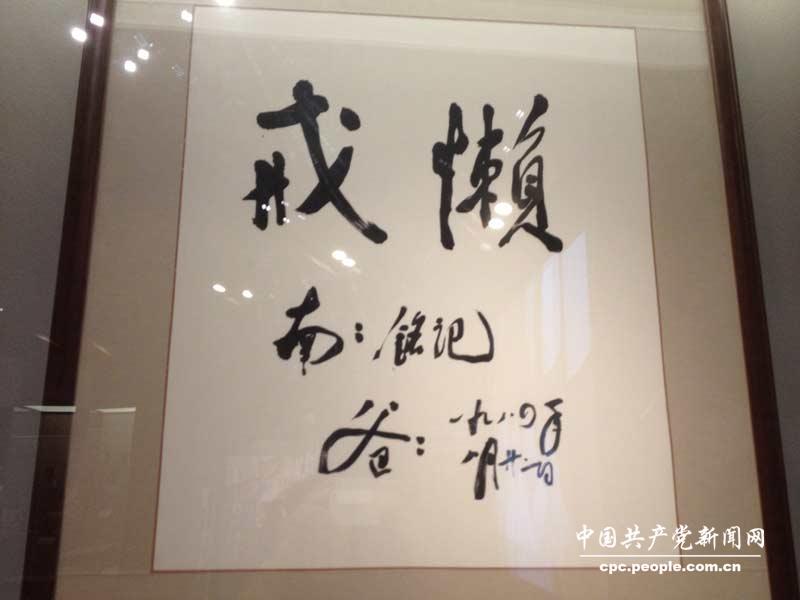 戒懒
南：铭记
爸：一九八〇年
八月廿二日
中国共产党新闻网
cpc.people.com.cn